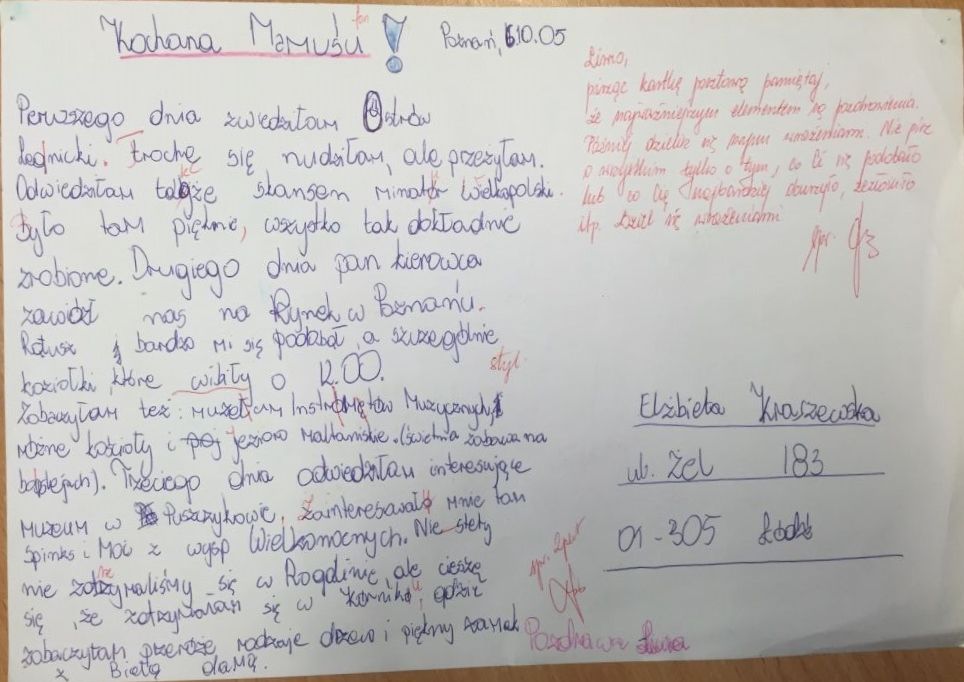 Kochana Mamusiu !
Poznań, 6.10.05
Pierwszego dnia zwiedziłam Ostrów
Lednicki. Trochę się nudziłam, ale przeżyłam.
Odwiedziłam także skansen miniatur Wielkopolski.
Było tam pięknie, wszystko tak dokładnie
zrobione. Drugiego dnia pan kierowca
zawiózł nas na Rynek w Poznaniu.
Ratusz bardzo mi się podobał, a szczególnie
koziołki, które wibiły o 12.00.
styl.
Zobaczyłam też: muzeum Instrumętów Muzycznych,
różne kościoły i jezioro maltańskie. (świetna zabawa na
). Trzeciego dnia odwiedziłam interesujące
muzeum w Puszczykowie. Zainteresował mnie tam
Spinks i Moai z wysp Wielkanocnych. Nie stety
nie zatrzymaliśmy się w Rogalinie, ale cieszę
się, że zatrzymałam się w Kórniku, gdzie
zobaczyłam przeróżne rodzaje drzew i piękny zamek
z Biełą damą.
Pozdrawiam
pisząc kartkę pocztową pamiętaj,
że najważniejszym elementem są pozdrowienia.
Później dzielisz się swymi wrażeniami. Nie pisz
o wszystkim tylko o tym, co Ci się podobało
lub co Cię najbardziej oburzyło, zezłościło
itp. Dziel się wrażeniami
spr.
Elżbieta Kraszewska
ul. Żel 183
01-305 Łódź
spr.